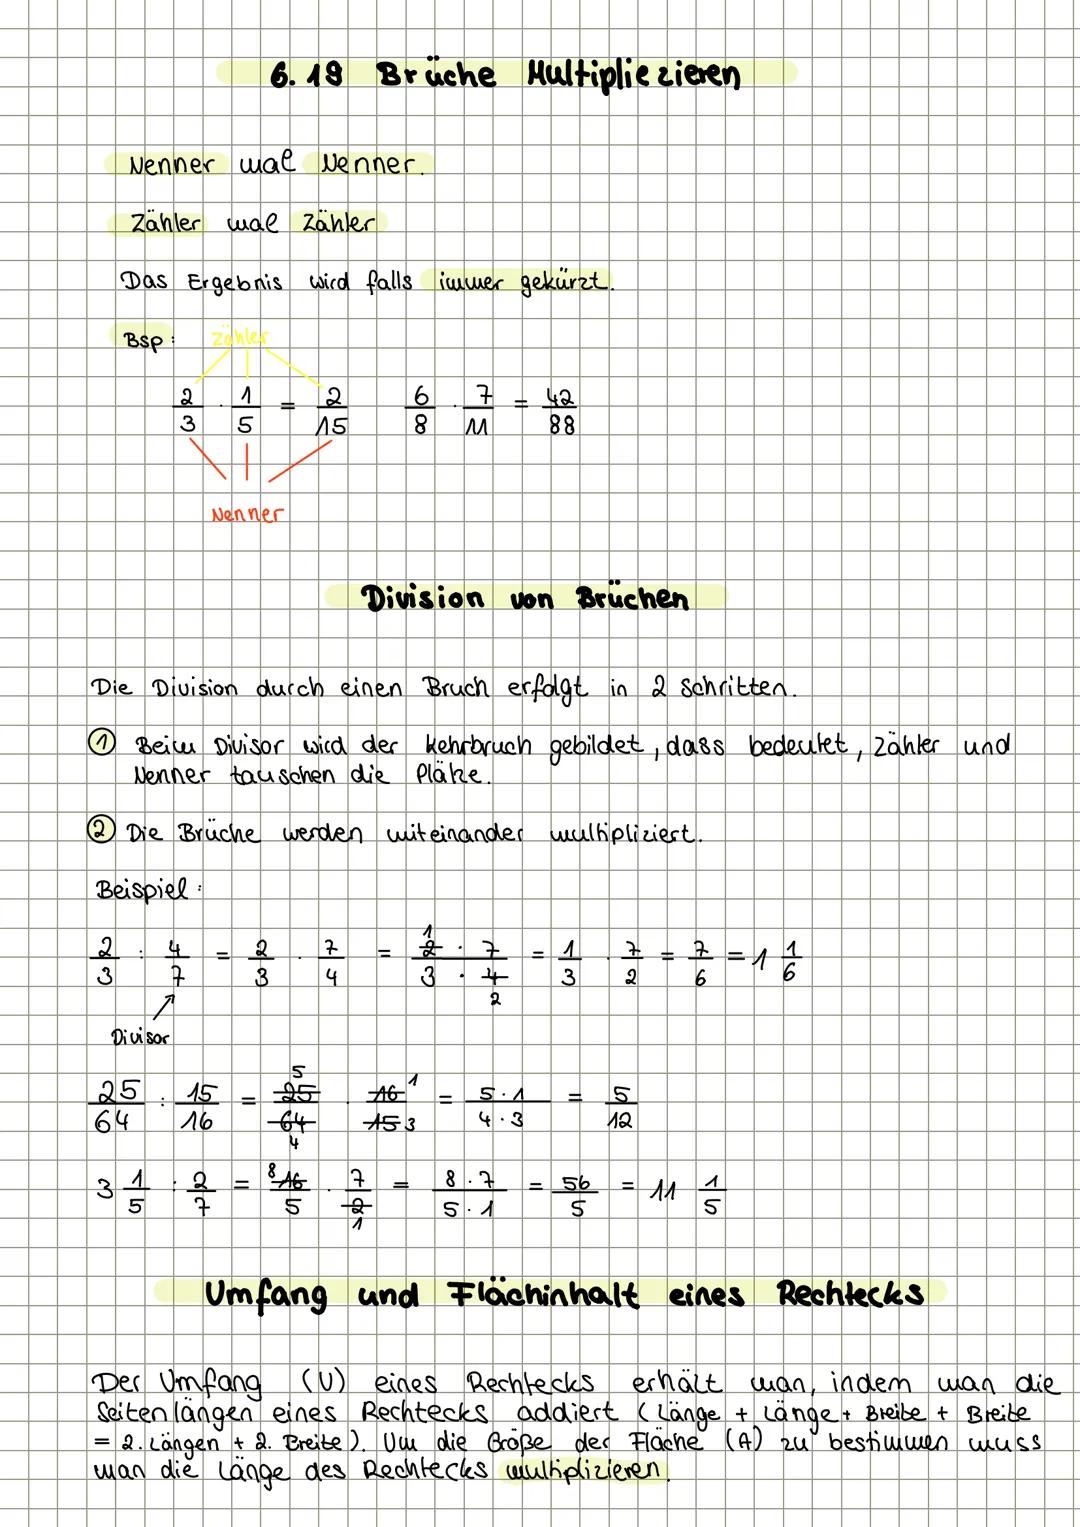 6.19 Brüche Multipliezieren
Nenner mal Nenner.
Zähler mal Zähler
Das Ergebnis wird falls immer gekürzt.
Bsp: Zähler
2/3 · 1/5 = 2/15 6/8 · 7/11 = 42/88
Nenner
Division von Brüchen
Die Division durch einen Bruch erfolgt in 2 Schritten.
① Beim Divisor wird der Kehrbruch gebildet, dass bedeutet, Zähler und
Nenner tauschen die Plätze.
② Die Brüche werden miteinander multipliziert.
Beispiel:
2/3 : 4/7 = 2/3 · 7/4 = 1 2 · 7 / 3 · 4 2 = 1/3 · 7/2 = 7/6 = 1 1/6
Divisor
25/64 : 15/16 = 5 25/64 4 · 16 1/15 3 = 5·1/4·3 = 5/12
3 1/5 : 2/7 = 8 16/5 · 7/2 1 = 8·7/5·1 = 56/5 = 11 1/5
Umfang und Flächinhalt eines Rechtecks
Der Umfang (U) eines Rechtecks erhält man, indem man die
Seitenlängen eines Rechtecks addiert (Länge + Länge + Breite + Breite
= 2. Längen + 2. Breite). Um die Größe der Fläche (A) zu bestimmen muss
man die Länge des Rechtecks multiplizieren.